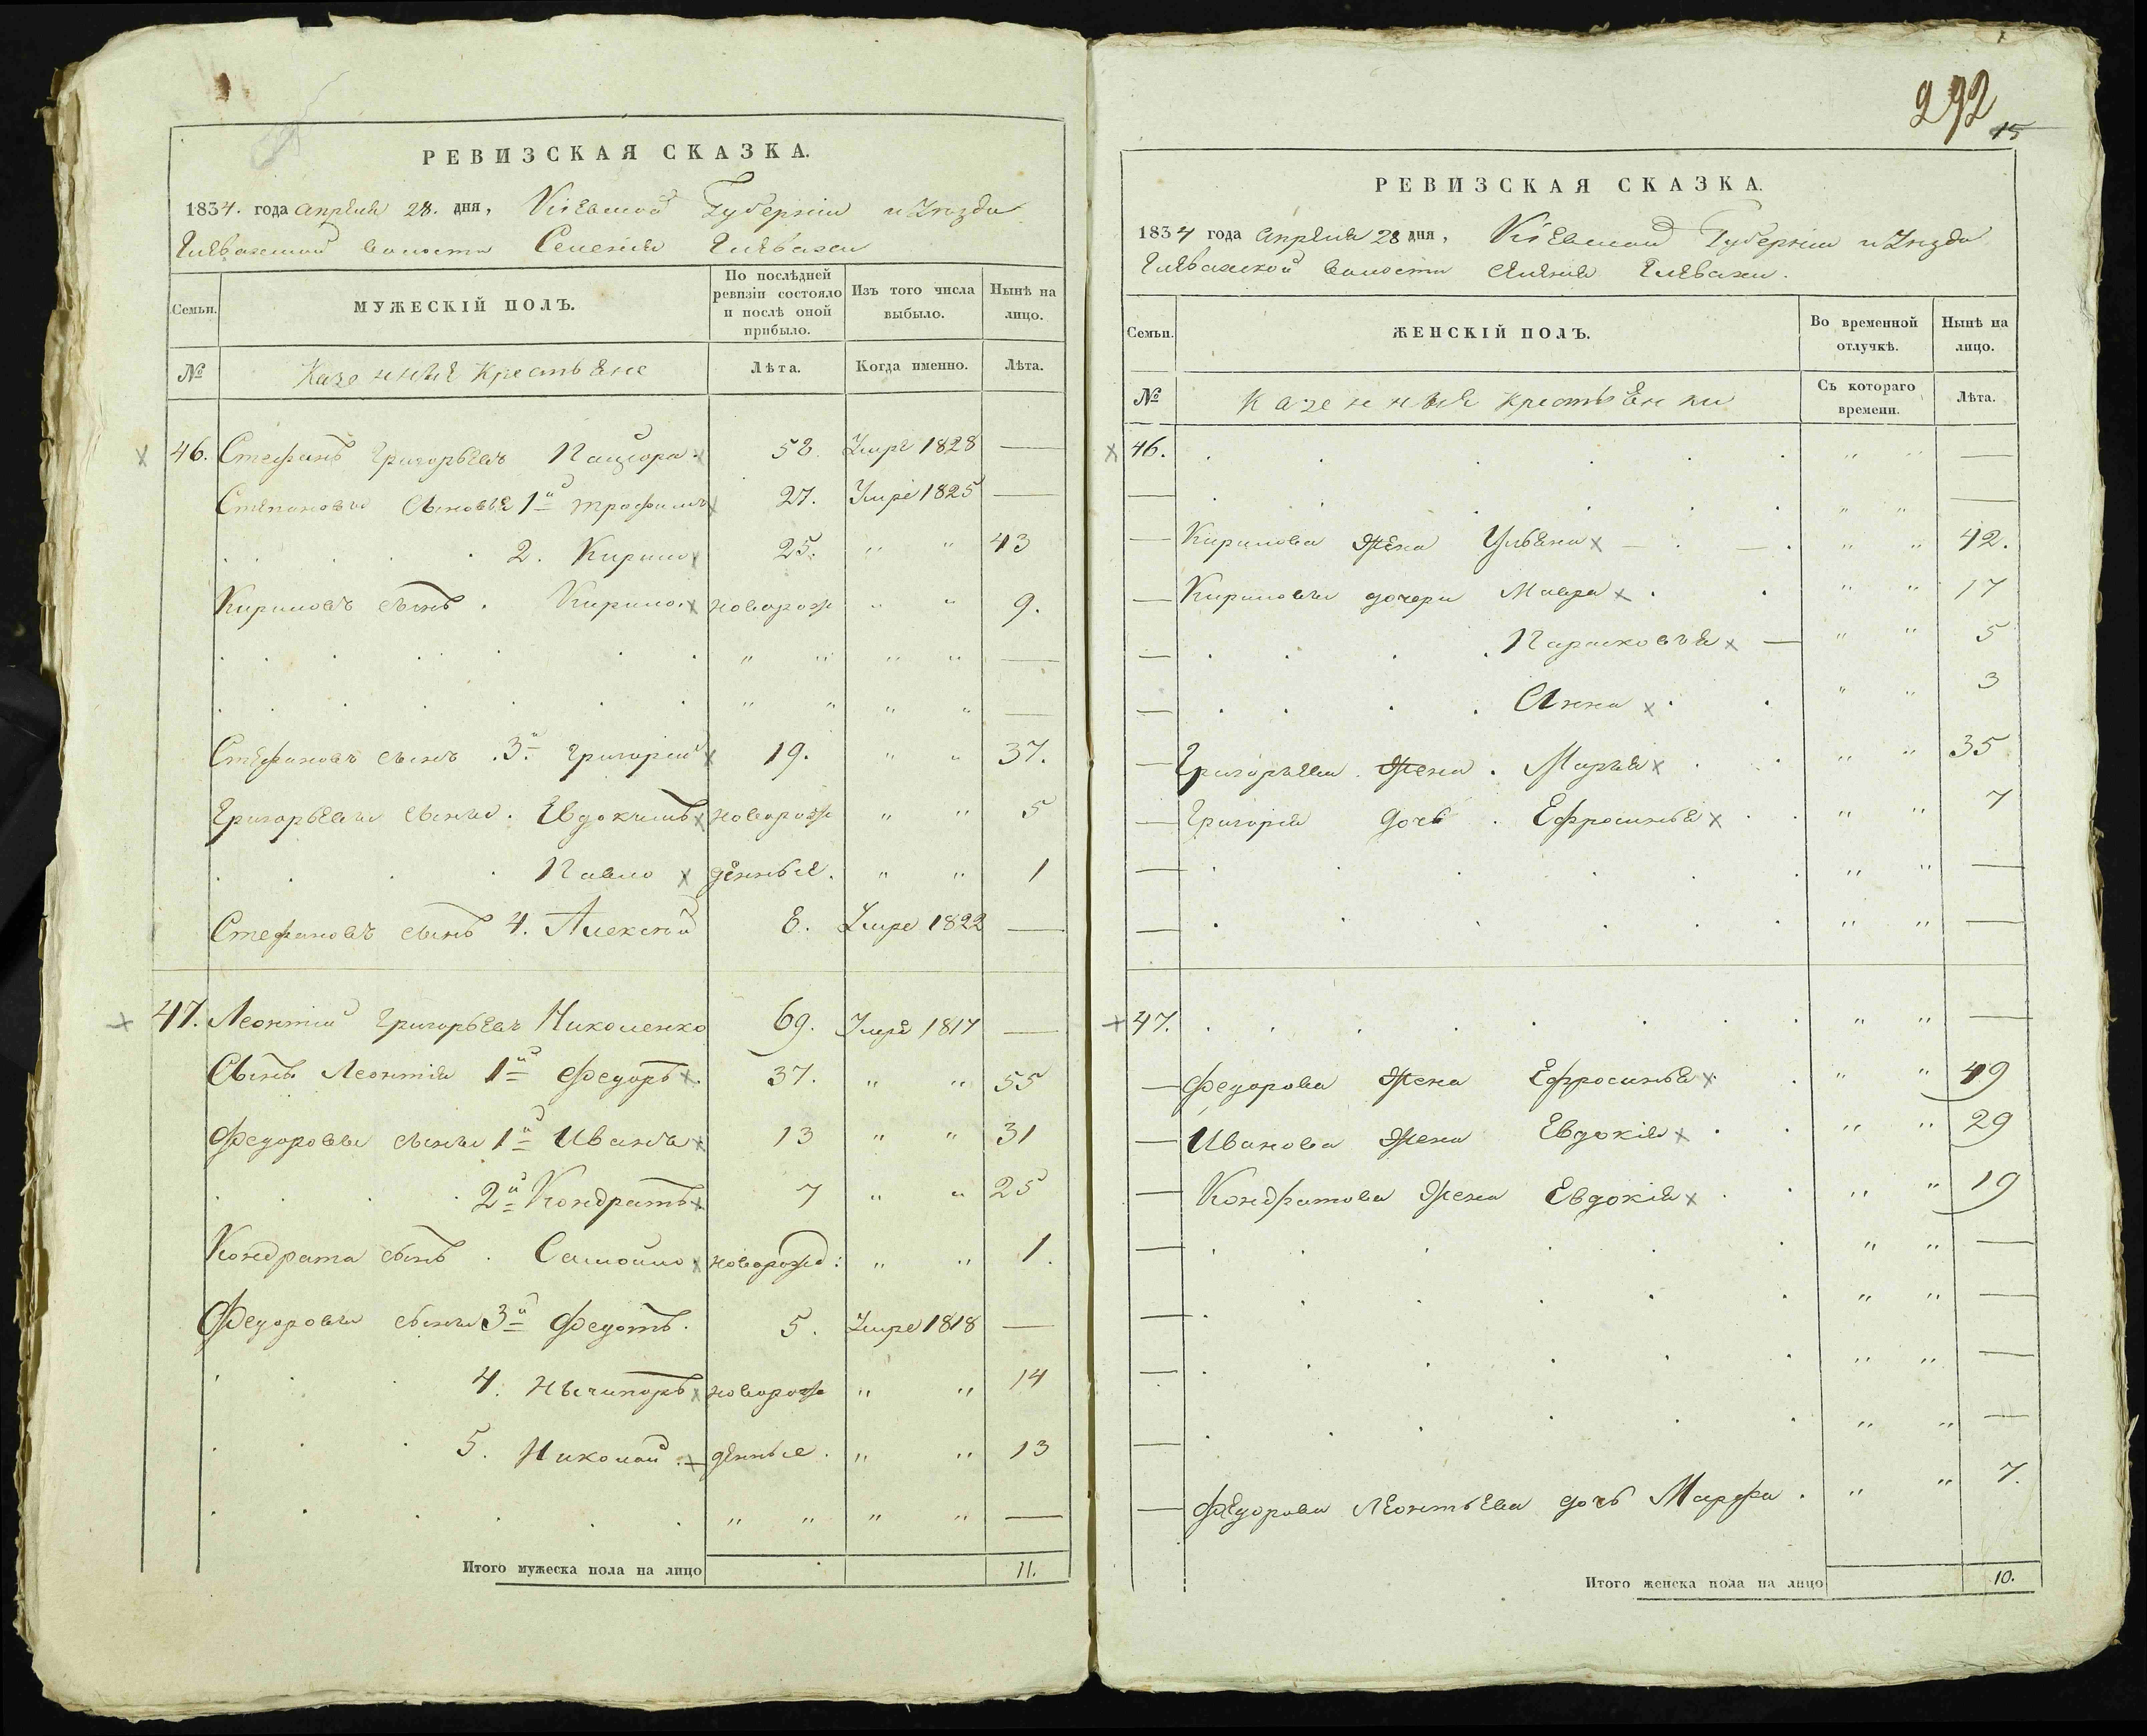 РЕВИЗСКАЯ СКАЗКА.
1834. года апреля 28. дня, Кіевской Губерніи и Уезда
Глевахской волости Селенія Глевахи
Семьи. МУЖЕСКІЙ ПОЛЪ. По послѣдней ревизіи состояло и послѣ оной прибыло. Изъ того числа выбыло. Нынѣ на лицо.
№ Казенные Крестьяне Лѣта. Когда именно. Лѣта.
46. Стефанъ Григорьевъ 58. Умре 1828 —
Степановы сыновья 1й Трофимъ 27. Умре 1825 —
2. Кирило 25. " " 43
Кириловъ сынъ . Кирило новорож " " 9.
" " " " —
" " " " —
Стефановъ сынъ 3й Григорій 19. " " 37.
Григорьевы сыны . Евдокимъ новорож " " 5
Павло денные. " " 1
Стефановъ сынъ 4. Алексей 8. Умре 1822 —
47. Леонтій Григорьевъ Николенко 69. Умре 1817 —
Сынъ Леонтія 1й Федоръ 37. " " 55
Федоровы сыны 1й Иванъ 13 " " 31
2й Кондратъ 7 " " 25
Кондрата сынъ . Самойло новорожд: " " 1.
Федоровы сыны 3й Федотъ. 5. Умре 1818 —
4. Нычипоръ новорож " " 14
5. Николай денные. " " 13
" " " " —
Итого мужеска пола на лицо 11.
292
15
РЕВИЗСКАЯ СКАЗКА.
1834 года Апреля 28 дня, Кіевской Губерніи и Уезда
Глевахской волости Селенія Глевахи.
Семьи. ЖЕНСКІЙ ПОЛЪ. Во временной отлучкѣ. Нынѣ на лицо.
№ Казенные крестьянки Съ котораго времени. Лѣта.
46. " " —
— " " —
— Кирилова жена Ульяна " " 42.
— Кириловы дочери Мавра " " 17
— Парасковья " " 5
— Анна " " 3
— Григорьева жена Марья " " 35
— Григорія дочь Ефросинья " " 7
— " " —
— " " —
47. " " —
— Федорова жена Ефросинья " " 49
— Иванова жена Евдокія " " 29
— Кондратова жена Евдокія " " 19
— " " —
— " " —
— " " —
— " " —
— Федорова Леонтьева дочь Марфа . " " 7.
Итого женска пола на лицо 10.